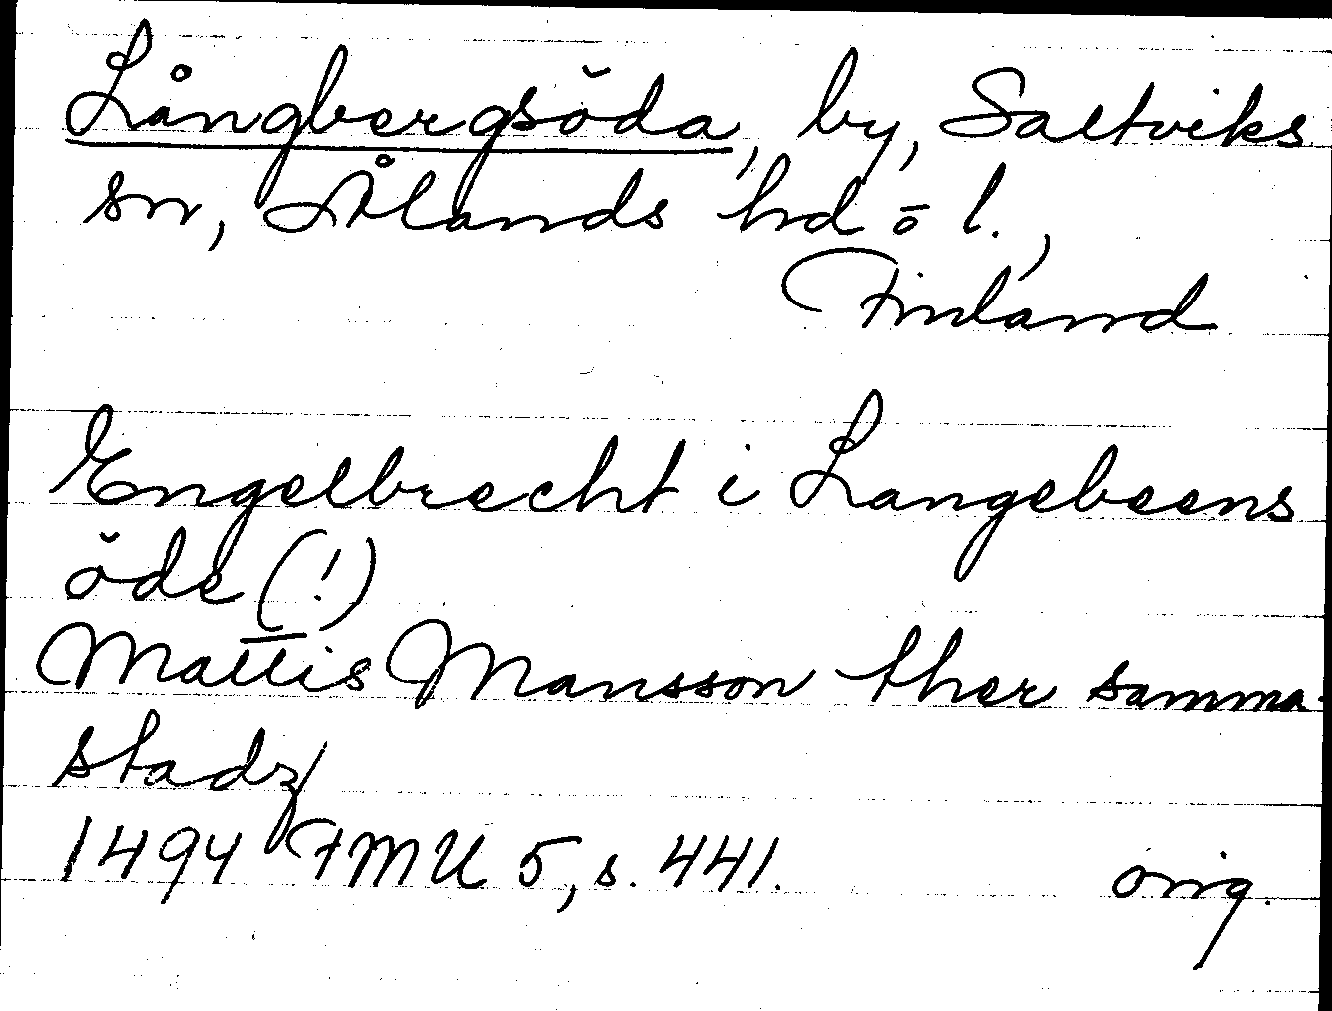 Långbergsöda, by, Saltviks
sn, Ålands hd o l.,
Finland
Engelbrecht i Langebeens
öde (!)
Mattis Mansson ther samma
stadz
1494 FMU 5, s. 441. orig.